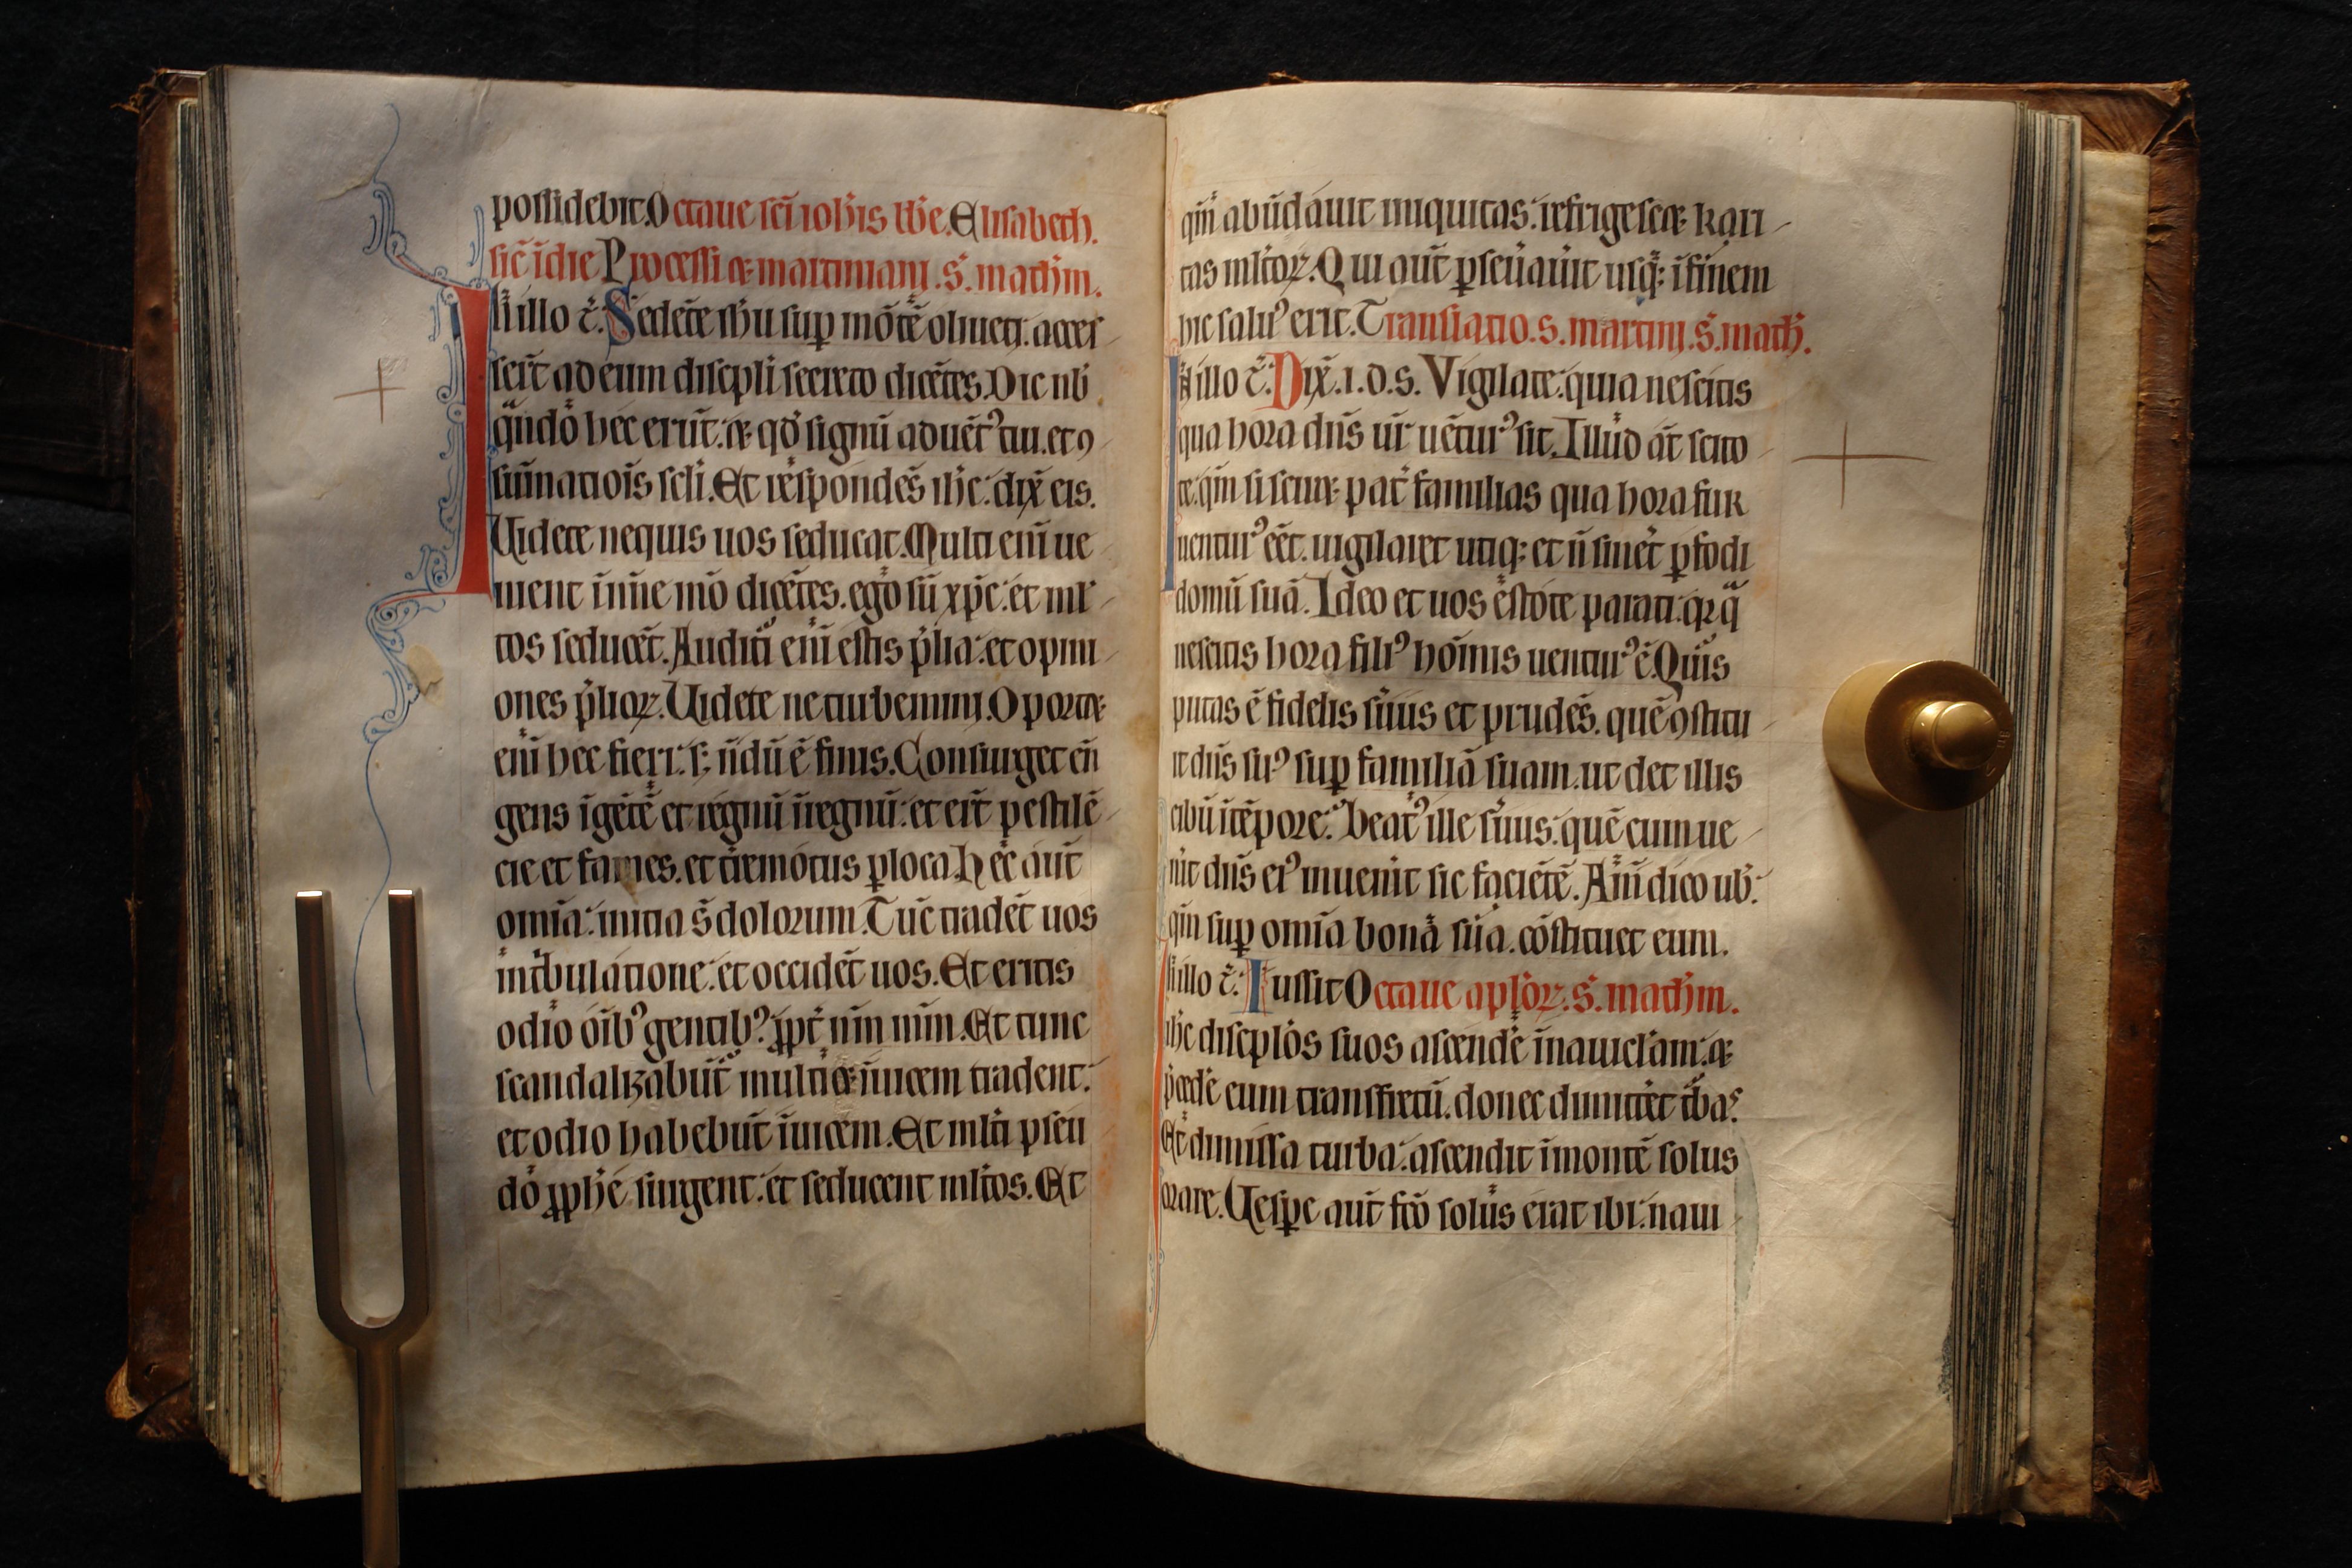 possidebit. Octaue scī ioh̄is bt̄e. Elisabeth.
sic̄ ī die Processi et martiniani. s̄. math̄m.
In illo t̄. Sedēte ih̄u sup mōtē oliueti: acces
serūt ad eum discipli secreto dicētes. Dic nb̄
qn̄do hec erūt: et qd̄ signū aduētꝰ tui. et ꝯ
sūmatiōis scl̄i. Et respondēs ih̄c: dix̄ eis.
Uidete nequis uos seducat. Multi enī ue
nient ī nōie mō dicētes. ego sū xp̄c: et ml̄
tos seducēt. Audituri enī estis p̄lia: et opini
ones p̄lioꝝ. Uidete ne turbemini. Oportet
enī hec fieri: sꝫ nōdū ē finis. Consurget eī
gens ī gētē et regnū ī regnū: et erūt pestilē
cie et fames. et t̄remotus ꝑ loca. Hec aūt
omīa: initia s̄ dolorum. Tūc tradēt uos
in tribulatione: et occidēt uos. Et eritis
odio oīb̓ gentibꝰ ꝓpt̄ nm̄ mm̄. Et tunc
scandalizabūt̄ multi et īuicem tradent:
et odio habebūt īuicem. Et ml̄ti pseu
do ꝓph̄e surgent: et seducent ml̄tos. Et
qm̄ abūdauit iniquitas: refrigescet kari
tas ml̄toꝝ. Qui aūt ꝑseūauīt usqꝫ ī finem
hic saluꝰ erit. Translatio. s. martini. s̄. math̄.
In illo t̄. Dix̄. i. d. s. Vigilate: quia nescitis
qua hora dn̄s ur̄ uēturꝰ sit. Illud āt scito
te: qm̄ si sciret pat̄ familias qua hora fur
uenturꝰ eēt. uigilaret utiqꝫ et n̄ sineret ꝑfodi
domū suā. Ideo et uos estote parati: qꝛ q̄
nescitis hora filiꝰ hōinis uenturꝰ ē. Quis
putas ē fidelis s̄uus et prudēs. quē ꝯstitu
it dn̄s suꝰ sup familiā suam. ut det illis
cibū ī tēpore: Beatꝰ ille s̄uus: quē cum ue
nīt dn̄s eiꝰ inuenīt sic faciētē. Am̄ dico ub̄:
qm̄ sup omīa bona sua. cōstituet eum.
In illo t̄. Iussit Octaue apl̄oꝝ. s̄. math̄m.
ih̄c discipl̄os suos ascendere ī nauiclam: et
p̄cedere eum transfretū. donec dimitteret t̄bas.
Et dimissa turba: ascendit ī montē solus
orare. Uespe aūt fc̄o solus erat ibi: naui